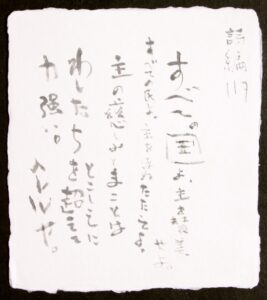 詩編117
すべての国よ、主を賛美せよ。
すべての民よ、主をほめたたえよ。
主の慈しみとまことは
とこしえに
わたしたちを超えて
力強い。ハレルヤ。